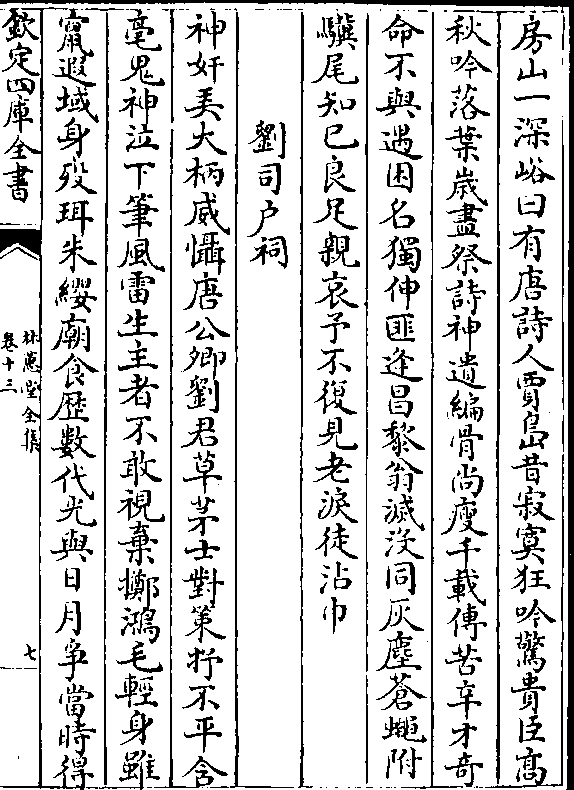 房山一深峪曰有唐詩人賈島昔寂寞狂吟驚貴臣高
秋吟落葉歳盡祭詩神遺編骨尚瘦千載傳苦辛才竒
命不與遇困名獨伸匪逢昌黎翁滅没同灰塵蒼蠅附
驥尾知已良足親哀予不復見老淚徒沾巾
劉司户祠
神奸弄大柄威懾唐公卿劉君草茅士對策抒不平含
毫鬼神泣下筆風雷生主者不敢視棄擲鴻毛輕身雖
竄遐域身殁珥朱纓廟食歴數代光與日月爭當時得
欽定四庫全書
林蕙堂全集
卷十三
七